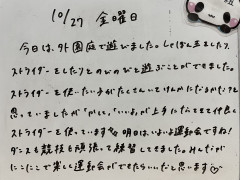 10/27 金曜日
今日は、外園庭で遊びました。しゃぼん玉をしたり、
ストライダーをしたりとのびのびと遊ぶことができました。
ストライダーを使いたい子がたくさんいてけんかになるかな?と
思っていましたが「かして」「いいよ」が上手にできていて仲良く
ストライダーを使っています 明日はいよいよ運動会ですね!
ダンスも競技も頑張って練習してきました。みんなが
にこにこで楽しい運動会ができたらいいなと思います♡